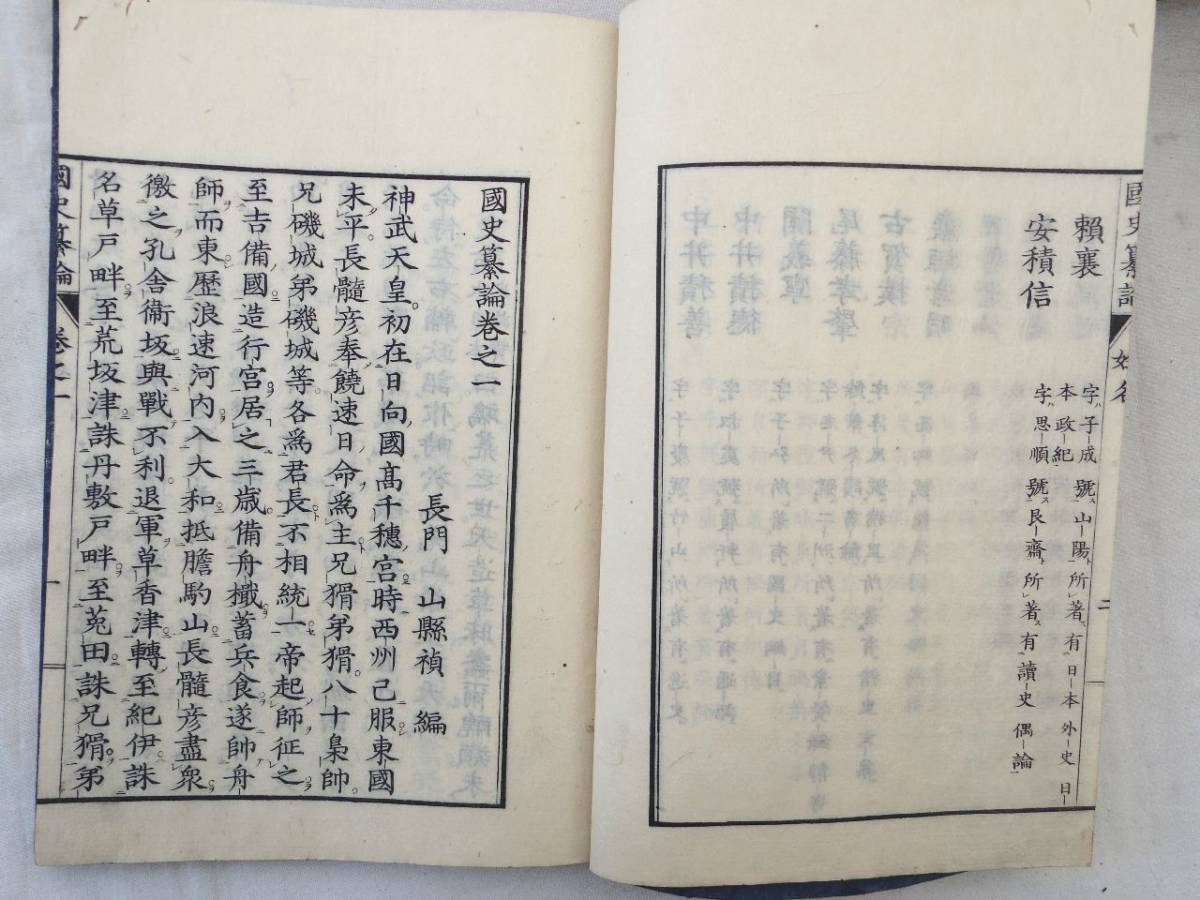 國史纂論
姓名
二
賴襄
字子成號山陽所著有日本外史日
本政紀
安積信
字思順號艮齋所著有讀史偶論
國史纂論卷之一
長門 山縣禎 編
神武天皇初在日向國高千穗宮時西州已服東國
未平長髓彦奉饒速日命爲主兄猾弟猾八十梟帥
兄磯城弟磯城等各爲君長不相統一帝起師征之
至吉備國造行宮居之三歲備舟檝蓄兵食遂帥舟
師而東歷浪速河內入大和抵膽駒山長髓彦盡衆
徼之孔舍衞坂與戰不利退軍草香津轉至紀伊誅
名草戶畔至荒坂津誅丹敷戶畔至菟田誅兄猾弟
國史纂論
卷之一
一